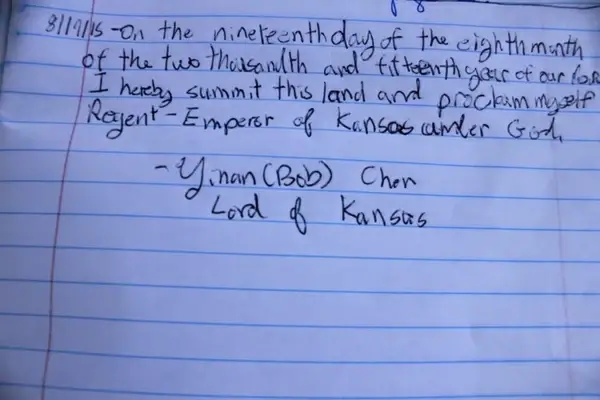 8/19/15 - On the nineteenth day of the eighth month
of the two thousandth and fifteenth year of our Lord
I hereby summit this land and proclaim myself
Regent-Emperor of Kansas under God.
- Yinan (Bob) Chen
Lord of Kansas